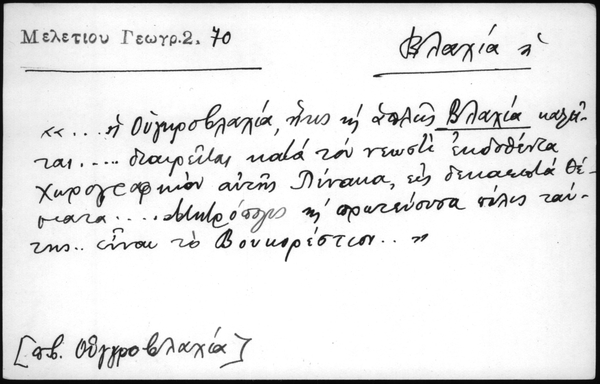 Μελετίου Γεωγρ.2, 70
Βλαχία ἡ
«... ἡ Οὐγκροβλαχία, ἥτις κỳ ἁπλῶς Βλαχία καλεῖ-
ται..... διαιρεῖται κατὰ τὸν νεωστὶ ἐκδοθέντα
Χωρογραφικὸν αὐτῆς Πίνακα, εἰς δεκαεπτά Θέ-
ματα.... Μητρόπολις κỳ πρωτεύουσα πόλις ταύ-
της.. εἶναι τὸ Βουκορέστιον.. »
[πβ. Οὐγγροβλαχία]